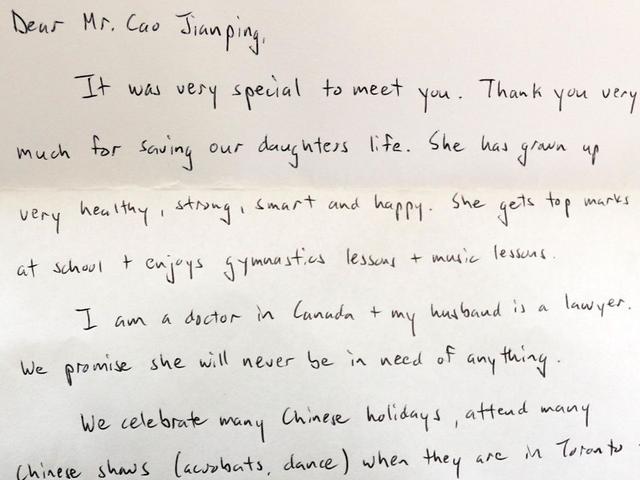 Dear Mr. Cao Jianping,
It was very special to meet you. Thank you very
much for saving our daughters life. She has grown up
very healthy, strong, smart and happy. She gets top marks
at school + enjoys gymnastics lessons + music lessons.
I am a doctor in Canada + my husband is a lawyer.
We promise she will never be in need of anything.
We celebrate many Chinese holidays, attend many
Chinese shows (acrobats, dance) when they are in Toronto